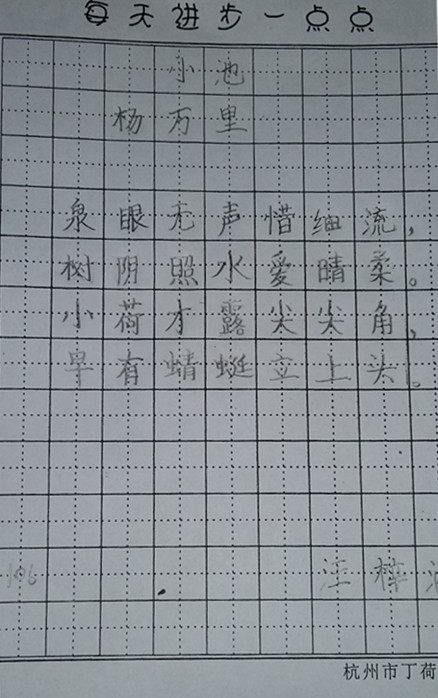 每天进步一点点
小池
杨万里
泉眼无声惜细流，
树阴照水爱晴柔。
小荷才露尖尖角，
早有蜻蜓立上头。
106
汪梓
杭州市丁荷